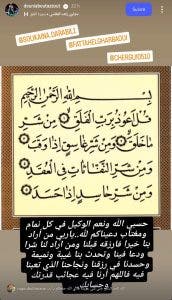 douniaboutazout 22 h
Suivre
@SOUKAINA.DARABIL1
@FATTAHELGHARBAOUI
@CHERGUI0510
بِسْمِ اللَّهِ الرَّحْمَٰنِ الرَّحِيمِ
قُلْ أَعُوذُ بِرَبِّ الْفَلَقِ ① مِن شَرِّ
مَا خَلَقَ ② وَمِن شَرِّ غَاسِقٍ إِذَا وَقَبَ ③
وَمِن شَرِّ النَّفَّاثَاتِ فِي الْعُقَدِ ④
وَمِن شَرِّ حَاسِدٍ إِذَا حَسَدَ ⑤
حسبي الله ونعم الوكيل في كل نمام
ومغتاب ياربي من أراد
بنا خيرا فارزقه قبلنا ومن أراد لنا شرا
ودعا فينا وتحدث بنا غيبة ونميمة
وحسدنا في رزقنا ونجاحنا الذي تعبنا
فيه فاللهم أرنا فيه عجائب قدرتك